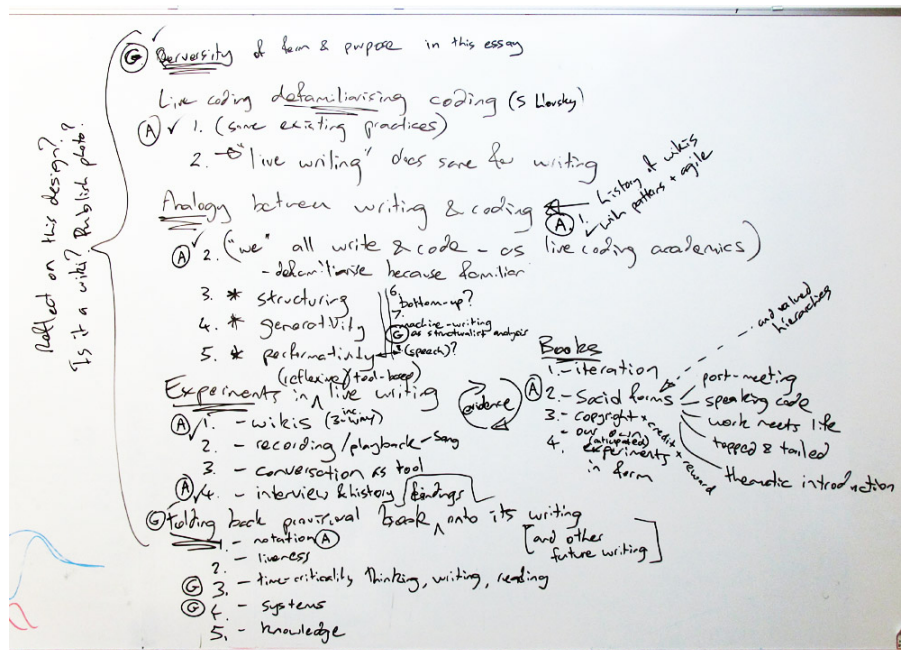 Reflect on this design?
Is it a wiki? Publish photo?
G ✓ Perversity of form & purpose in this essay
Live coding defamiliarising coding (
A ✓ 1. (some existing practices)
2. "live writing" does same for writing
Analogy between writing & coding
A 1. history of wikis
✓ with patterns + agile
A ✓ 2. ("we" all write & code - as live coding academics)
- defamiliarise because familiar
3. * structuring
4. * generativity
5. * performativity
(reflexive/tool-based)
6. bottom-up?
7. machine-writing
G as structuralist analysis
(speech)?
Experiments in live writing
A ✓ 1. - wikis (3-way)
inc.
2. - recording/playback - song
3. - conversation as tool
A ✓ 4. - interview & history / findings
evidence
Books
1. - iteration
A 2. - Social forms
and valued
hierarchies
3. - copyright x credit x reward
4. - our own
(anticipated)
experiments
in form
post-meeting
speaking code
work meets life
topped & tailed
thematic introduction
G Folding back provisional book onto its writing
[and other
future writing]
1. - notation A
2. - liveness
G 3. - time-criticality thinking, writing, reading
G 4. - systems
5. - knowledge